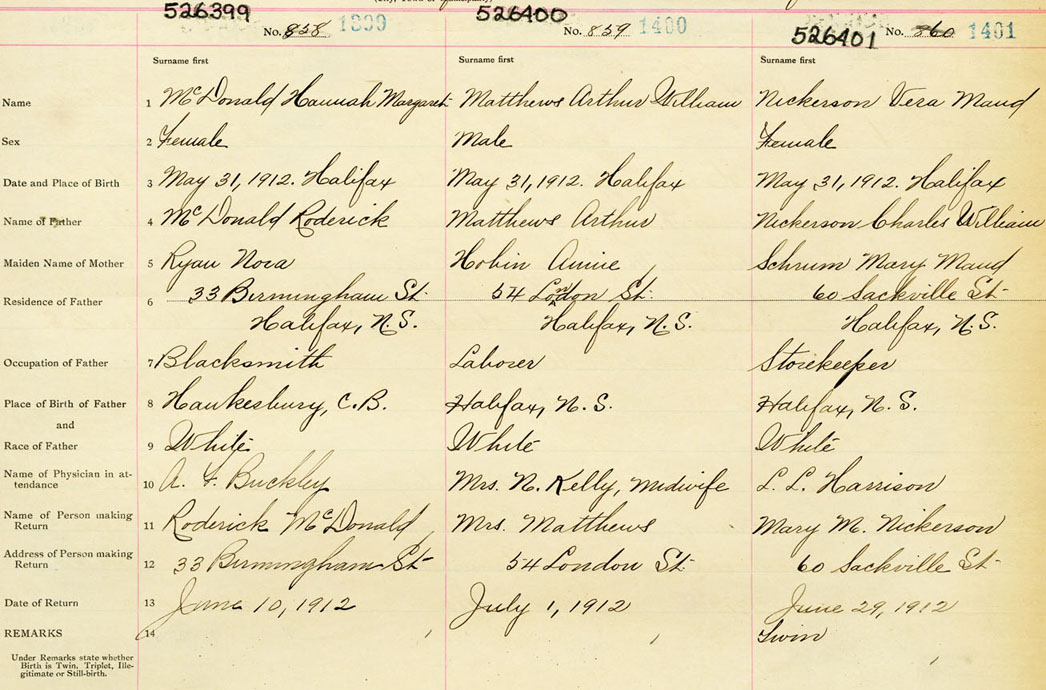 526399 526400 526401
No. 858 1399 No. 859 1400 No. 860 1401
Surname first Surname first Surname first
Name 1 McDonald Hannah Margaret Matthews Arthur William Nickerson Vera Maud
Sex 2 Female Male Female
Date and Place of Birth 3 May 31, 1912. Halifax May 31, 1912. Halifax May 31, 1912. Halifax
Name of Father 4 McDonald Roderick Matthews Arthur Nickerson Charles William
Maiden Name of Mother 5 Ryan Nora Hobin Annie Schrum Mary Maud
Residence of Father 6 33 Birmingham St. 54 London St. 60 Sackville St.
Halifax, N.S. Halifax, N.S. Halifax, N.S.
Occupation of Father 7 Blacksmith Laborer Storekeeper
Place of Birth of Father 8 Hawkesbury, C.B. Halifax, N.S. Halifax, N.S.
and
Race of Father 9 White White White
Name of Physician in at-
tendance 10 A. F. Buckley Mrs. N. Kelly, Midwife L. L. Harrison
Name of Person making
Return 11 Roderick McDonald Mrs. Matthews Mary M. Nickerson
Address of Person making
Return 12 33 Birmingham St. 54 London St. 60 Sackville St.
Date of Return 13 June 10, 1912 July 1, 1912 June 29, 1912
REMARKS 14 Twin
Under Remarks state whether
Birth is Twin, Triplet, Ille-
gitimate or Still-birth.